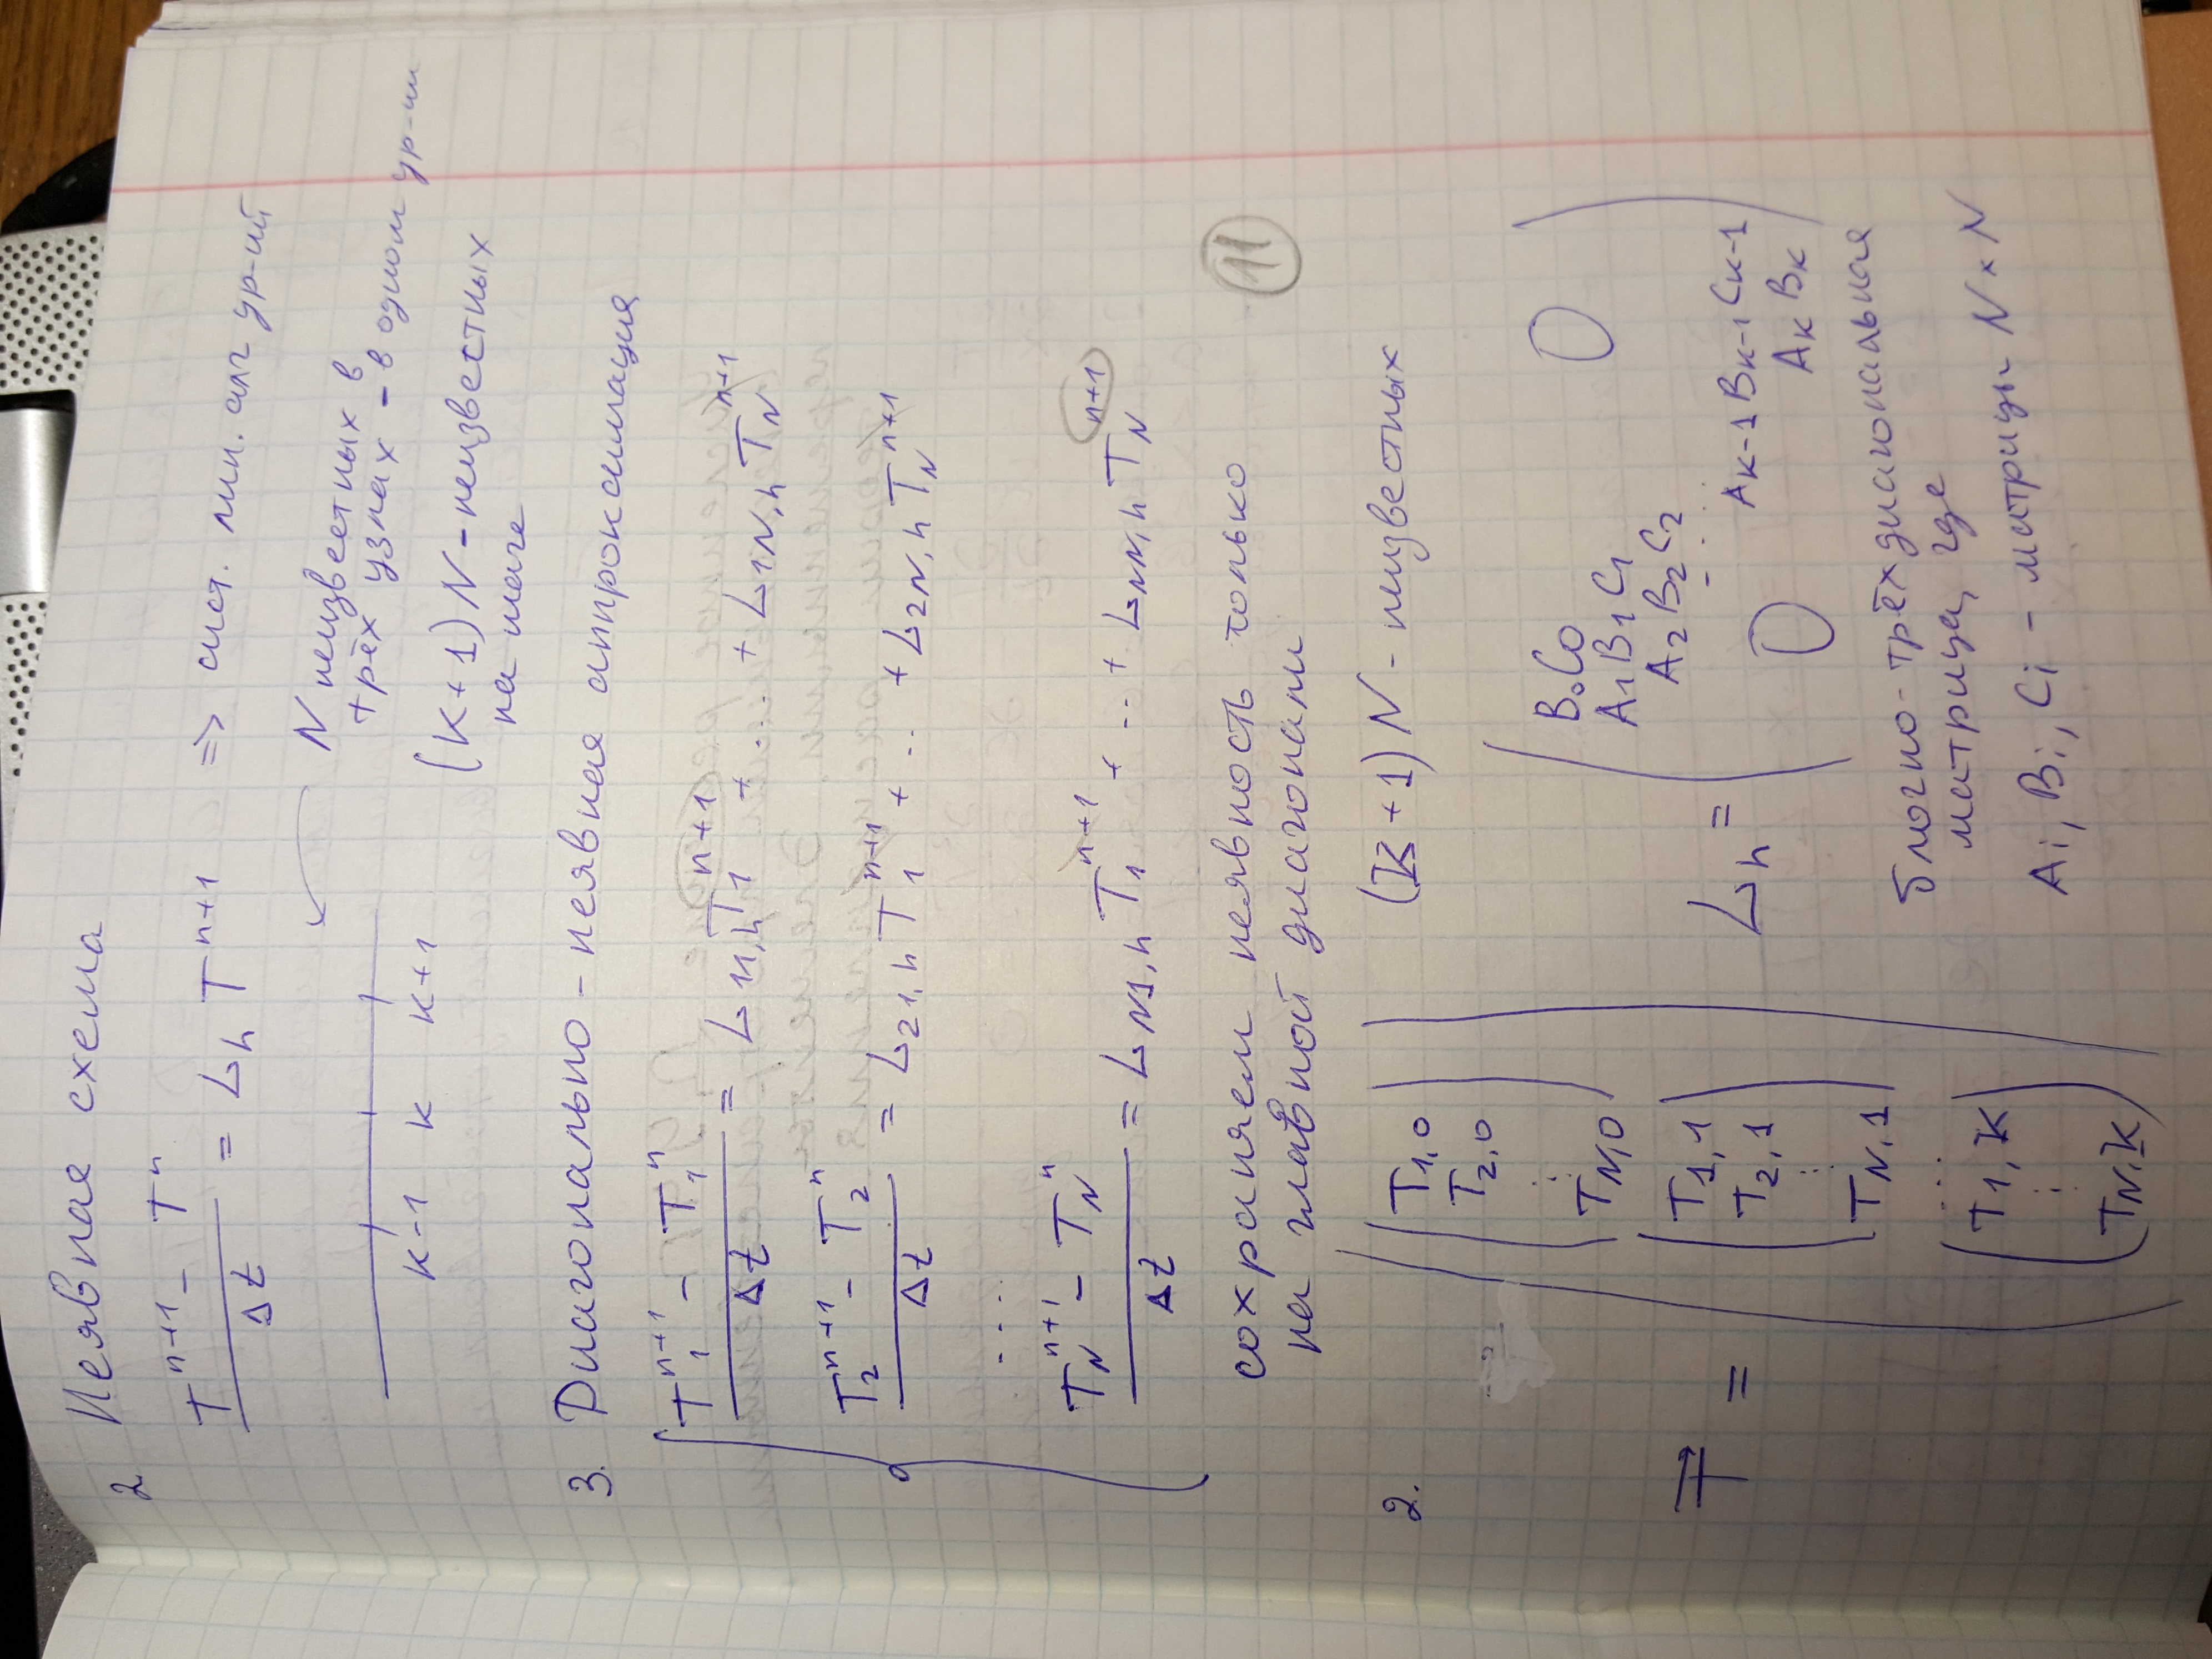 2 Неявная схема
(T^{n+1} - T^n) / Δt = L_h T^{n+1} => сист. лин. алг ур-ий
N неизвестных в
трёх узлах - в одном ур-ии
k-1 k k+1
(K+1)N - неизвестных
на шаге
3. Диагонально - неявная аппроксимация
(T_1^{n+1} - T_1^n) / Δt = L_{11,h} T_1^{n+1} + ... + L_{1N,h} T_N^{n+1}
(T_2^{n+1} - T_2^n) / Δt = L_{21,h} T_1^{n+1} + .. + L_{2N,h} T_N^{n+1}
....
(T_N^{n+1} - T_N^n) / Δt = L_{N1,h} T_1^{n+1} + .. + L_{NN,h} T_N^{n+1}
сохраняем неявность только
на главной диагонали
11
2.
(K+1)N - неизвестных
T⃗ =
T_{1,0}
T_{2,0}
⋮
T_{N,0}
T_{1,1}
T_{2,1}
⋮
T_{N,1}
...
T_{1,K}
⋮
T_{N,K}
L_h =
B_0 C_0 0
A_1 B_1 C_1
A_2 B_2 C_2
.....
A_{K-1} B_{K-1} C_{K-1}
0 A_K B_K
блочно-трёхдиагональная
матрица, где
A_i, B_i, C_i - матрицы N × N